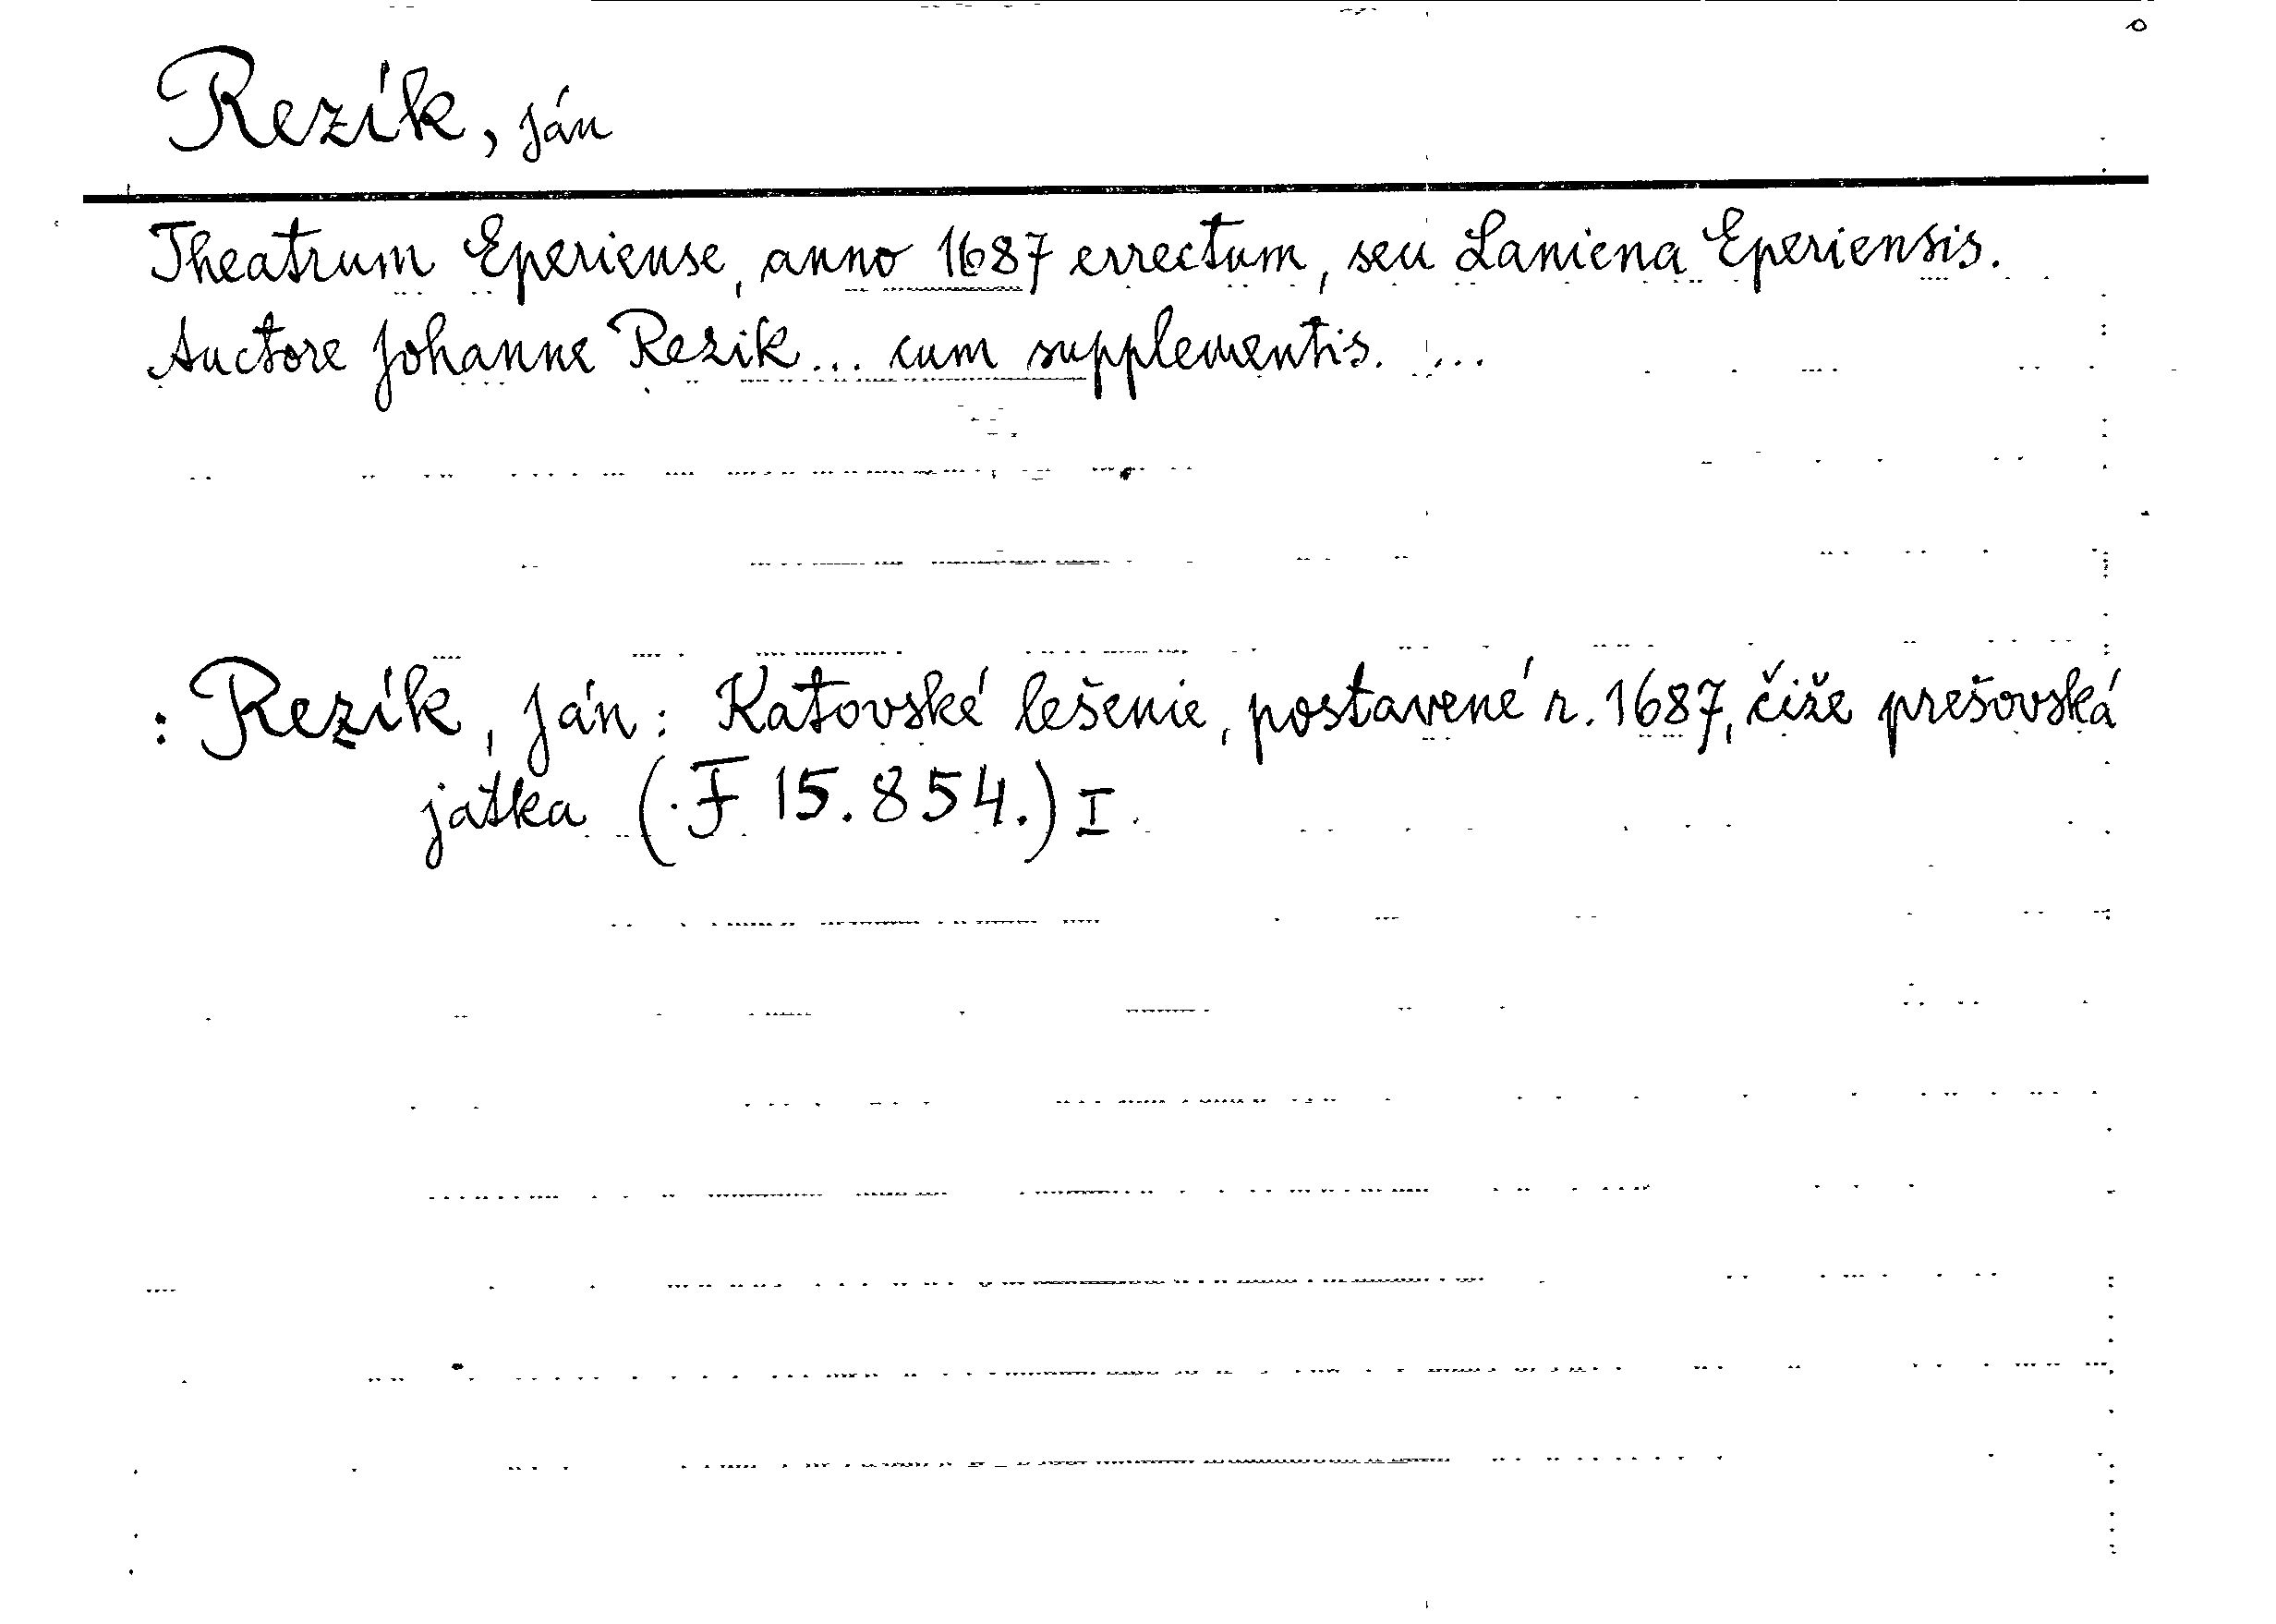 Rezík, Ján
Theatrum Eperiense, anno 1687 errectum, seu Laniena Eperiensis.
Auctore Johanne Rezik... cum supplementis. ...
: Rezík, Ján: Katovské lešenie, postavené r. 1687, čiže prešovská
jatka (F 15.854.) I